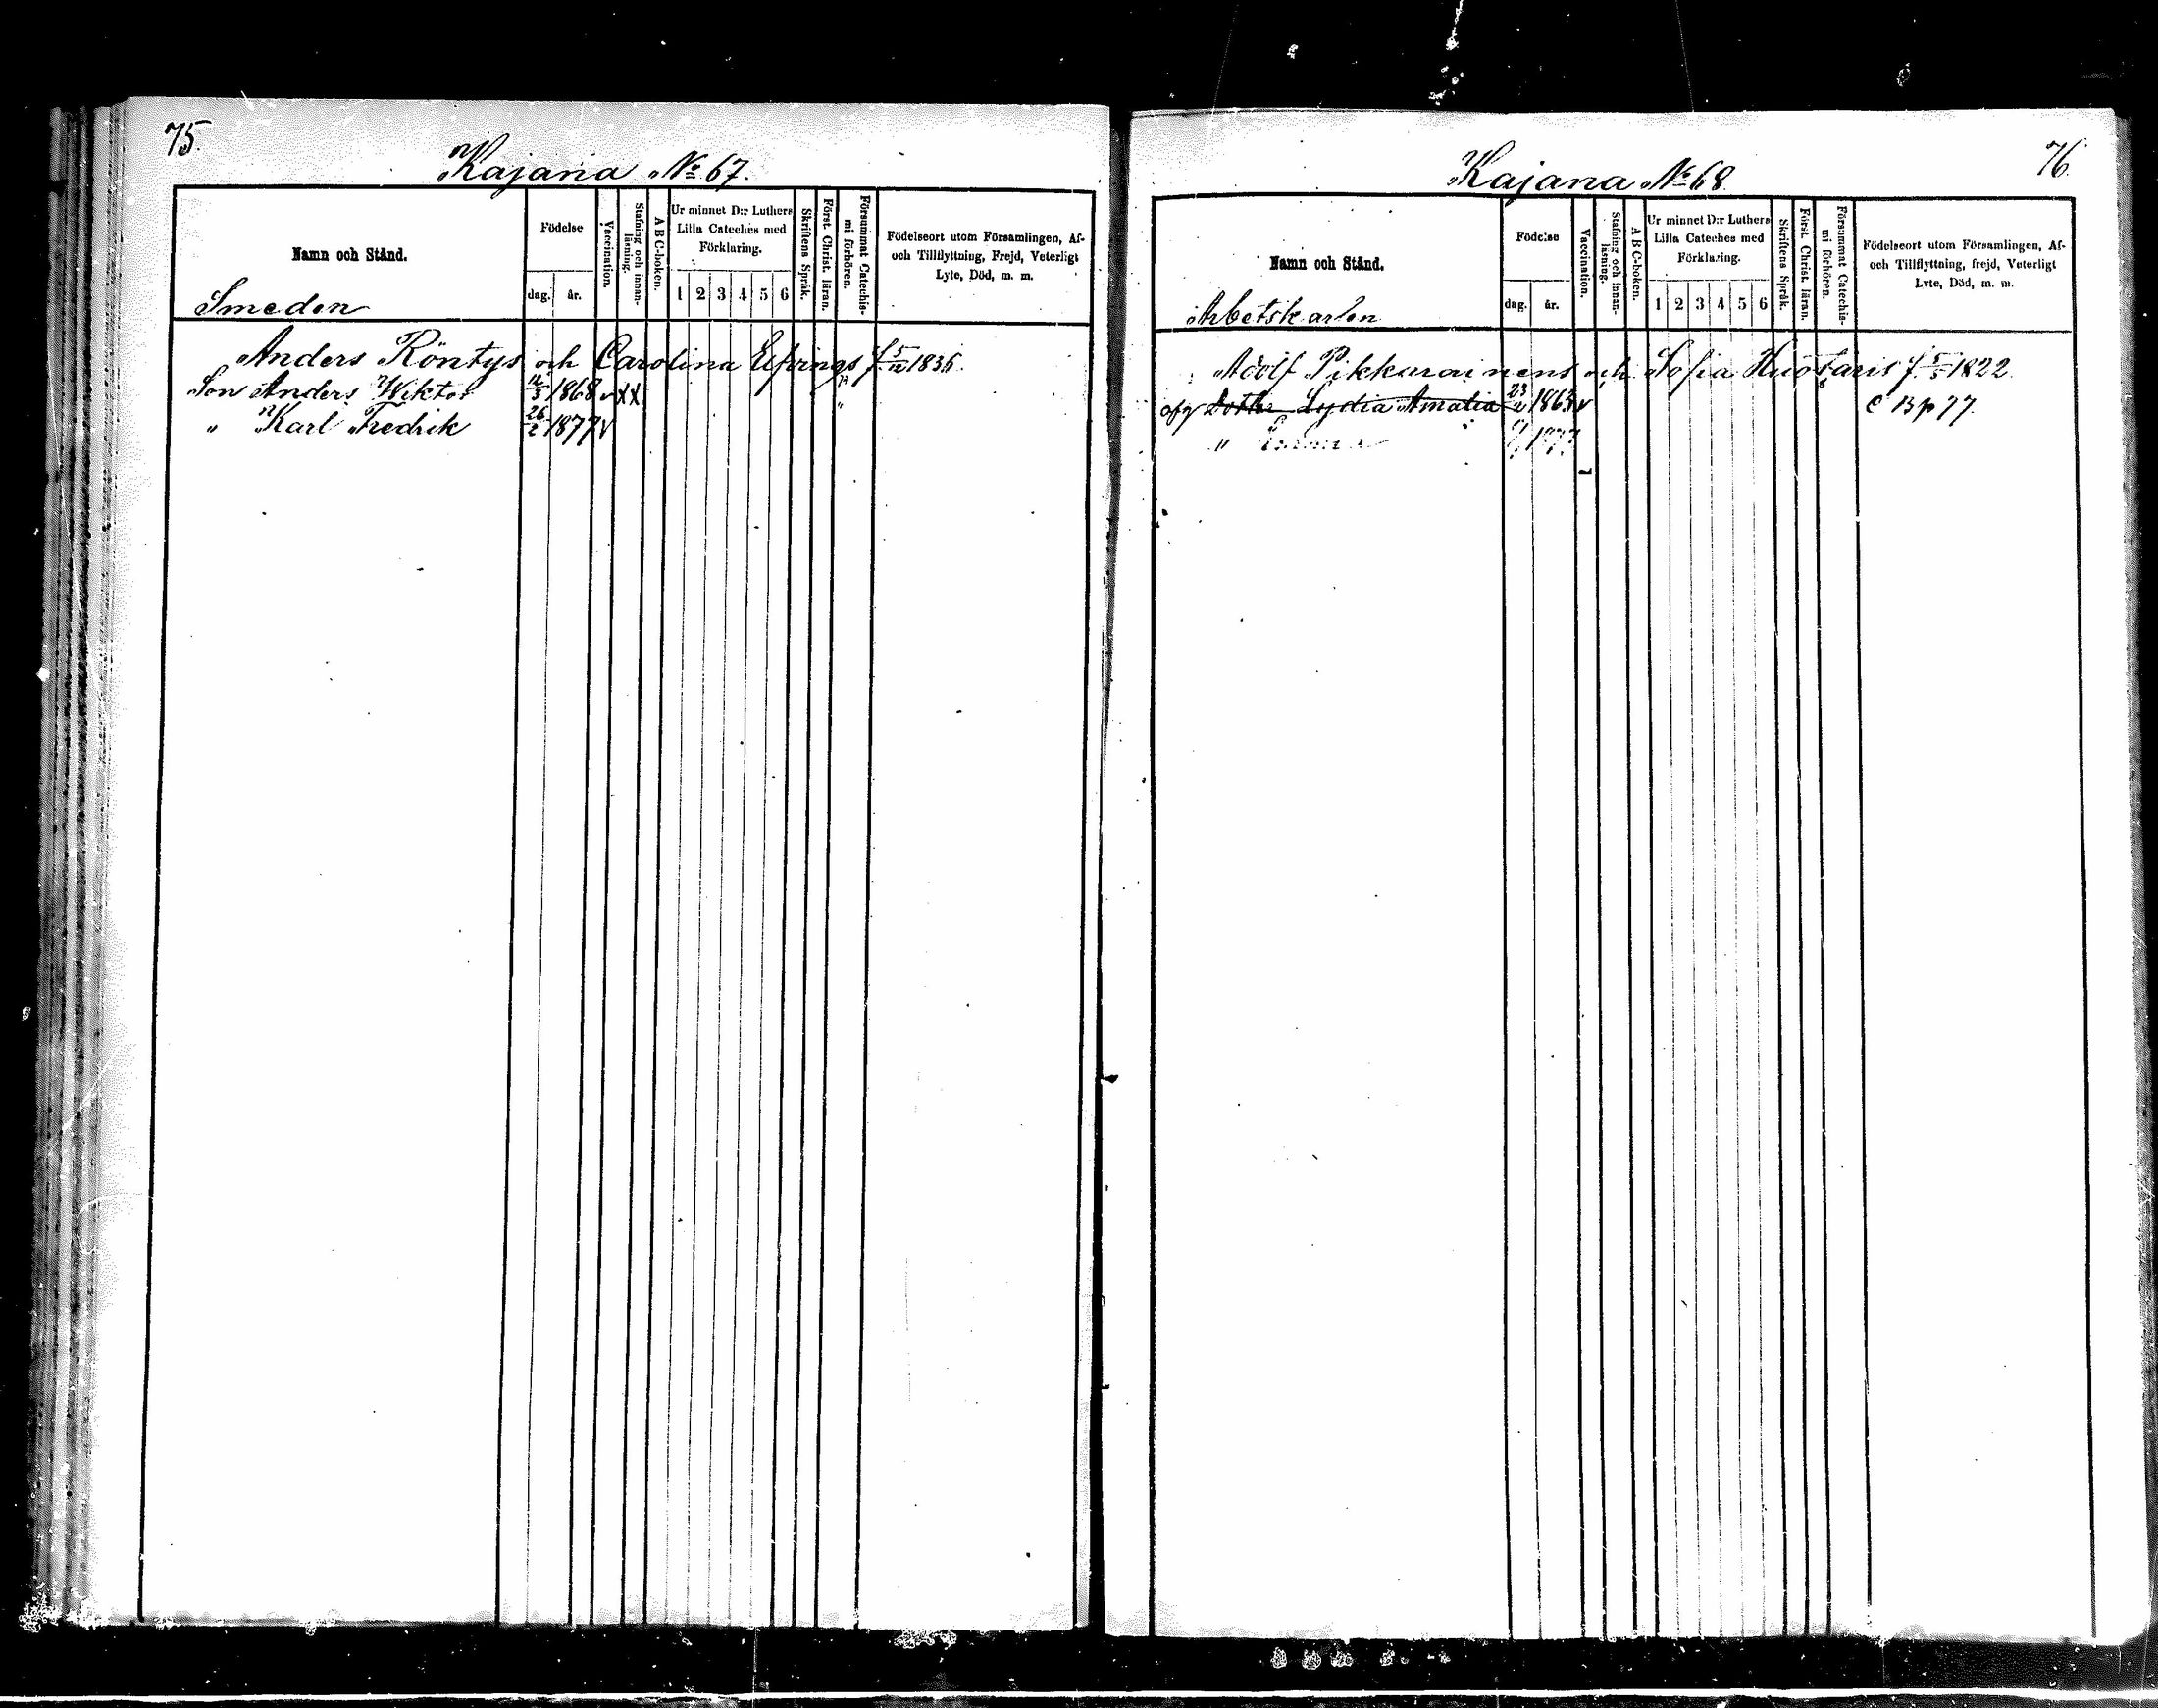 75.
Kajana № 67.
Namn och Stånd.
Smeden
Födelse
dag. år.
Vaccination.
Stafning och innan-
läsning.
A B C-boken.
Ur minnet D:r Luthers
Lilla Cateches med
Förklaring.
1 2 3 4 5 6
Skriftens Språk.
Först. Christ. läran.
Försummat Catechis-
mi förhören.
Födelseort utom Församlingen, Af-
och Tillflyttning, Frejd, Veterligt
Lyte, Död, m. m.
Anders Röntys och Carolina Elfvings f. 5/12 1836.
Son Anders Wiktor 12/3 1868 v x x "
" Karl Fredrik 26/2 1877 v "
76.
Kajana № 68
Namn och Stånd.
Arbetskarlen
Födelse
dag. år.
Vaccination.
Stafning och innan-
läsning.
A B C-boken.
Ur minnet D:r Luthers
Lilla Cateches med
Förklaring.
1 2 3 4 5 6
Skriftens Språk.
Först. Christ. läran.
Försummat Catechis-
mi förhören.
Födelseort utom Församlingen, Af-
och Tillflyttning, frejd, Veterligt
Lyte, Död, m. m.
Adolf Pikkarainens och Sofia Huotaris f. 5/5 1822.
Lydia Amalia 23/2 v C B p 77.
"